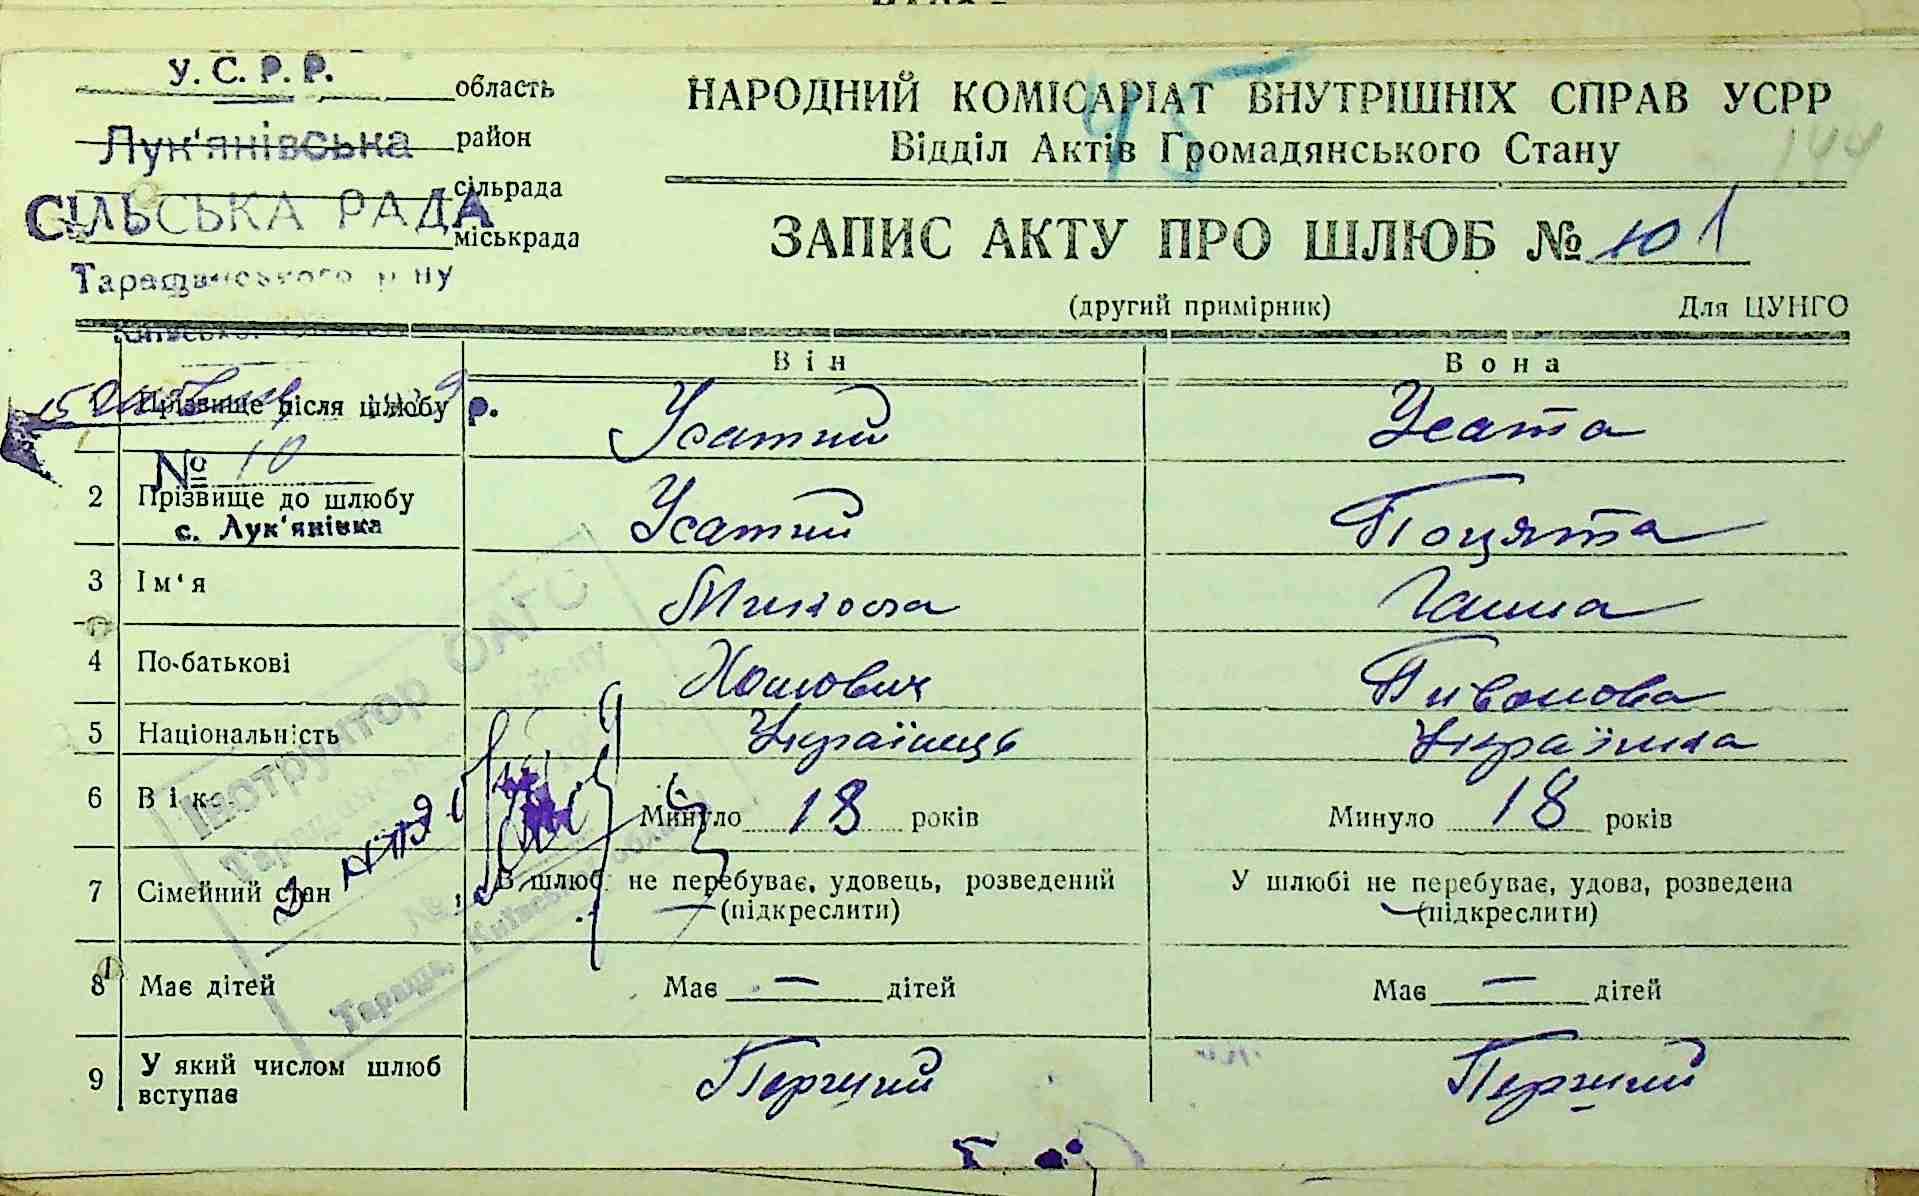 У. С. Р. Р.
область
НАРОДНИЙ КОМІСАРІАТ ВНУТРІШНІХ СПРАВ УСРР
45
Лук'янівська район
Відділ Актів Громадянського Стану
144
сільрада
СІЛЬСЬКА РАДА
міськрада
ЗАПИС АКТУ ПРО ШЛЮБ № 101
Таращанського р-ну
(другий примірник) Для ЦУНГО
Він Вона
1 Прізвище після шлюбу р. Усатий Усата
№ 10
2 Прізвище до шлюбу Усатий Поцята
с. Лук'янівка
3 Ім'я Микола Ганна
4 По-батькові Хомович Пивонова
5 Національність Українець Українка
6 Вік Минуло 18 років Минуло 18 років
7 Сімейний стан В шлюбі не перебуває, удовець, розведений У шлюбі не перебуває, удова, розведена
(підкреслити) (підкреслити)
8 Має дітей Має — дітей Має — дітей
9 У який числом шлюб вступає Перший Перший
Інструктор ОАГС
Тараща, Київської області